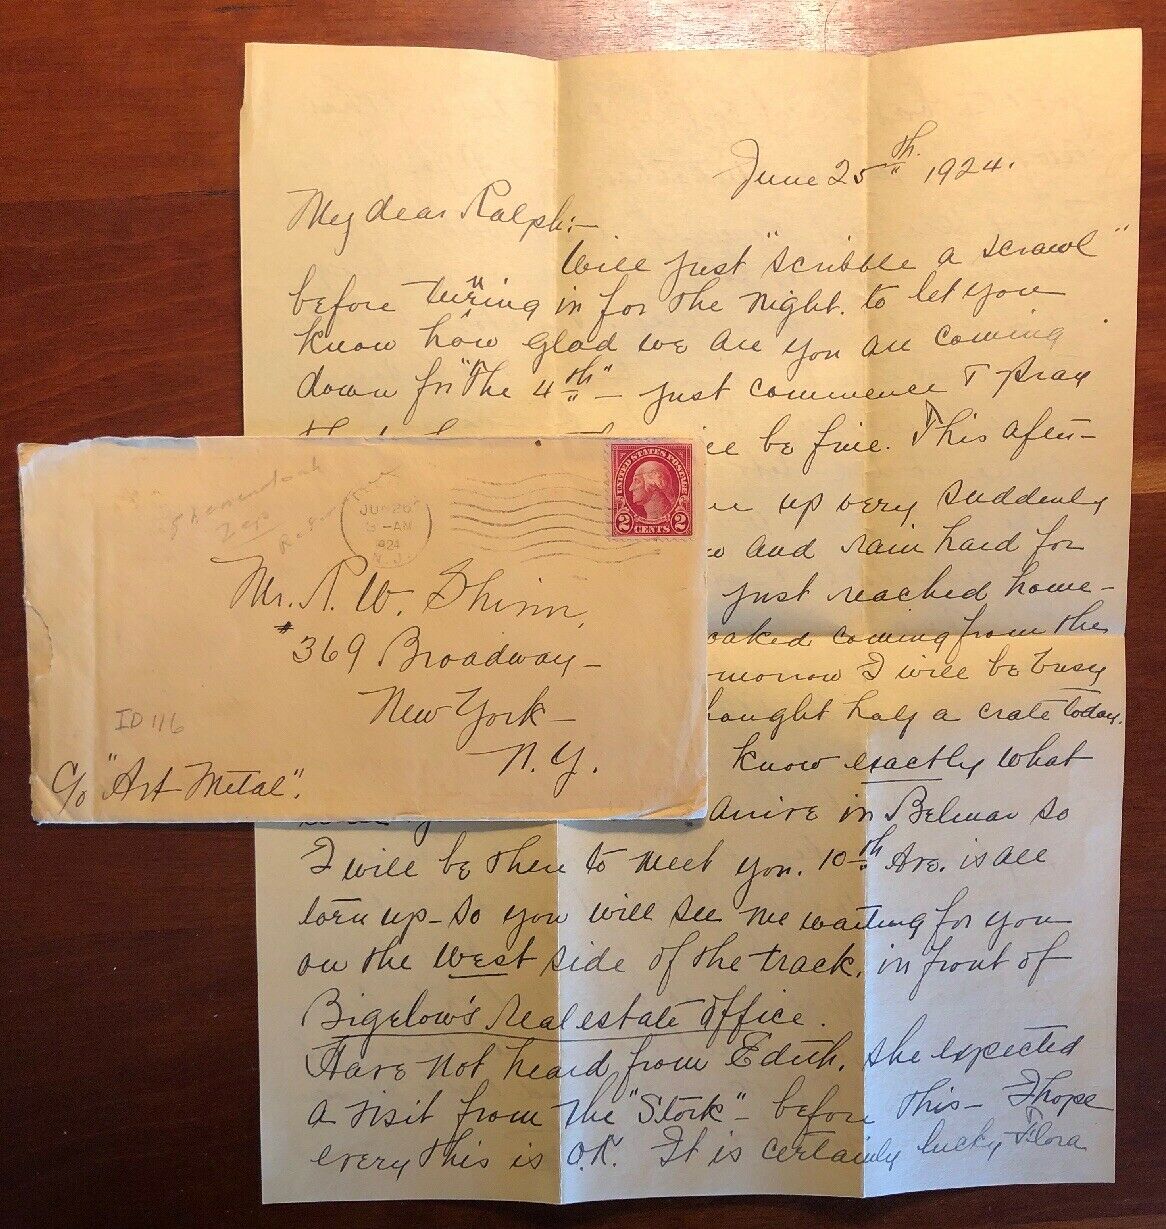 June 25th 1924.
My dear Ralph:-
Will just "scribble a scrawl"
before turning in for the night. to let you
know how glad we are you are coming
down for "the 4th" - just commence & pray
be fine. This after-
up very suddenly
and rain hard for
just reached home-
coming from the
I will be busy
half a crate today.
know exactly what
arrive in Belmar so
I will be there to meet you. 10th Ave. is all
torn up - so you will see me waiting for you
on the west side of the track, in front of
Bigelow's real estate office.
Have not heard from Edith, she expected
a visit from the "Stork" - before this - I hope
every this is O.K. It is certainly lucky Flora
UNITED STATES POSTAGE
2 CENTS 2
JUN 26
-AM
1924
N.J.
Mr. R. W. Shinn,
#369 Broadway -
New York -
N.Y.
C/o "Art Metal".
ID 116